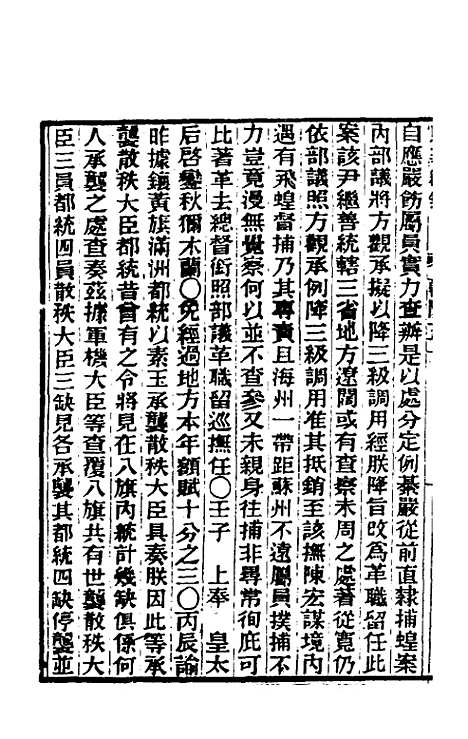 自應嚴飭屬員實力查辦是以處分定例綦嚴從前直隸捕蝗案
內部議將方觀承擬以降三級調用經朕降旨改為革職留任此
案該尹繼善統轄三省地方遼闊或有查察未周之處著從寬仍
依部議照方觀承例降三級調用准其抵銷至該撫陳宏謀境內
遇有飛蝗督捕乃其專責且海州一帶距蘇州不遠屬員撲捕不
力豈竟漫無覺察何以並不查參又未親身往捕非尋常徇庇可
比著革去總督銜照部議革職留巡撫任〇壬子 上奉 皇太
后啓鑾秋獮木蘭〇免經過地方本年額賦十分之三〇丙辰諭
昨據鑲黃旗滿洲都統以素玉承襲散秩大臣具奏朕因此等承
襲散秩大臣都統昔曾有之令將見在八旗內統計幾缺俱係何
人承襲之處查奏茲據軍機大臣等查覆八旗共有世襲散秩大
臣三員都統四員散秩大臣三缺見各承襲其都統四缺停襲並